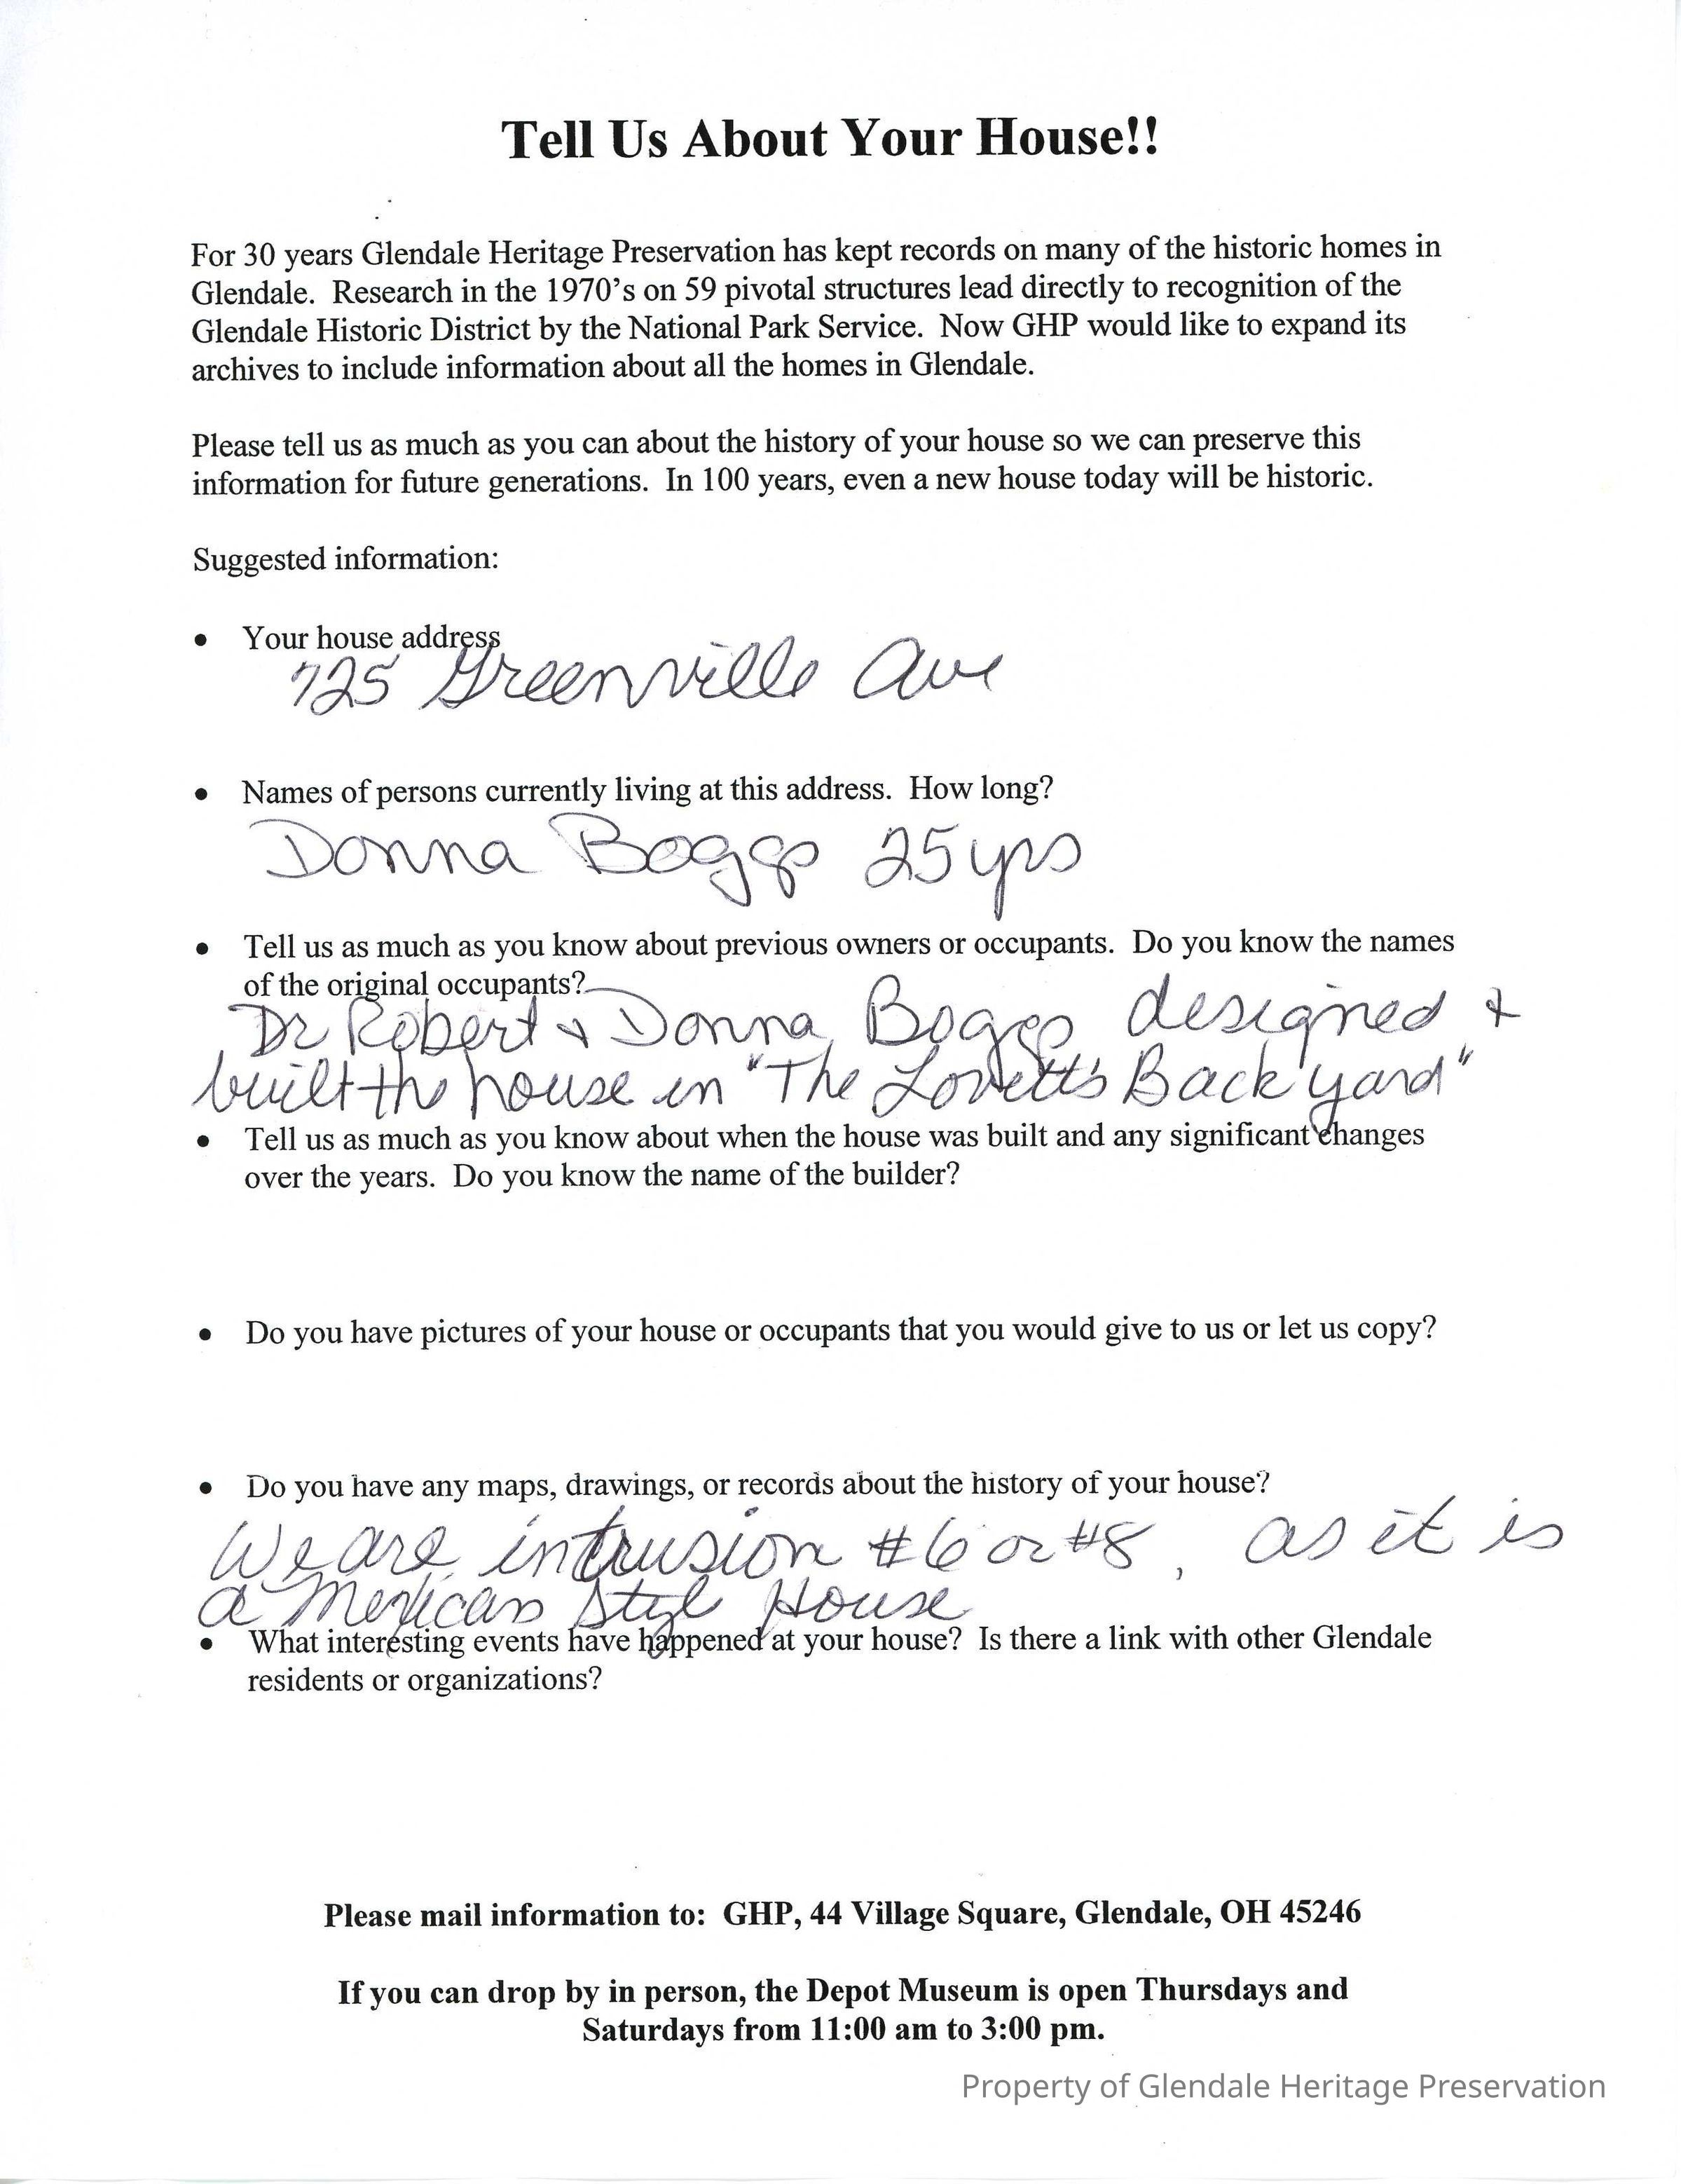 Tell Us About Your House!!
For 30 years Glendale Heritage Preservation has kept records on many of the historic homes in
Glendale. Research in the 1970's on 59 pivotal structures lead directly to recognition of the
Glendale Historic District by the National Park Service. Now GHP would like to expand its
archives to include information about all the homes in Glendale.
Please tell us as much as you can about the history of your house so we can preserve this
information for future generations. In 100 years, even a new house today will be historic.
Suggested information:
• Your house address
725 Greenville Ave
• Names of persons currently living at this address. How long?
Donna Boggs 25 yrs
• Tell us as much as you know about previous owners or occupants. Do you know the names
of the original occupants?
Dr Robert & Donna Boggs designed &
built the house in "The Lovetts Back yard"
• Tell us as much as you know about when the house was built and any significant changes
over the years. Do you know the name of the builder?
• Do you have pictures of your house or occupants that you would give to us or let us copy?
• Do you have any maps, drawings, or records about the history of your house?
We are intrusion #6 or #8, as it is
a Mexican Style House
• What interesting events have happened at your house? Is there a link with other Glendale
residents or organizations?
Please mail information to: GHP, 44 Village Square, Glendale, OH 45246
If you can drop by in person, the Depot Museum is open Thursdays and
Saturdays from 11:00 am to 3:00 pm.
Property of Glendale Heritage Preservation